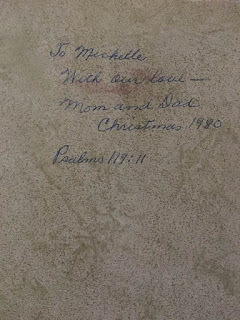 To Michelle
With our love —
Mom and Dad
Christmas 1980
Psalms 119:11